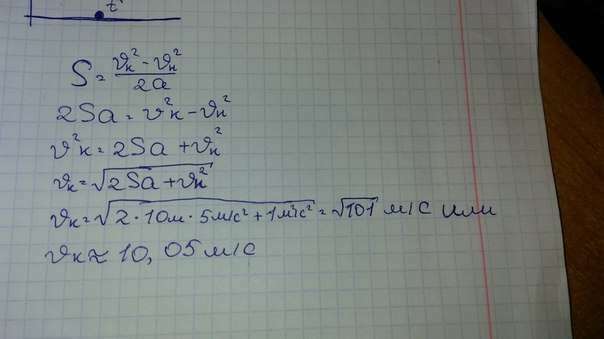 t
S = (υк² - υн²) / 2a
2Sa = υ²к - υн²
υ²к = 2Sa + υн²
υк = √(2Sa + υн²)
υк = √(2 · 10м · 5м/с² + 1м²/с²) = √101 м/с или
υк ≈ 10,05 м/с